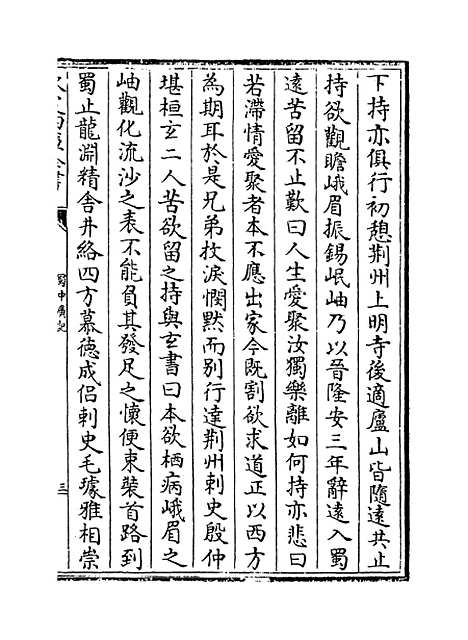 下持亦俱行初憩荆州上明寺後適廬山皆隨遠共止
持欲觀瞻峨眉振錫岷岫乃以晉隆安三年辭遠入蜀
遠苦留不止歎曰人生愛聚汝獨樂離如何持亦悲曰
若滯情愛聚者本不應出家今既割欲求道正以西方
為期耳於是兄弟抆淚憫默而别行達荆州刺史殷仲
堪桓玄二人苦欲留之持與玄書曰本欲栖病峨眉之
岫觀化流沙之表不能負其發足之懷便束装首路到
蜀止龍淵精舍井絡四方慕徳成侣刺史毛璩雅相崇
蜀中廣記
三